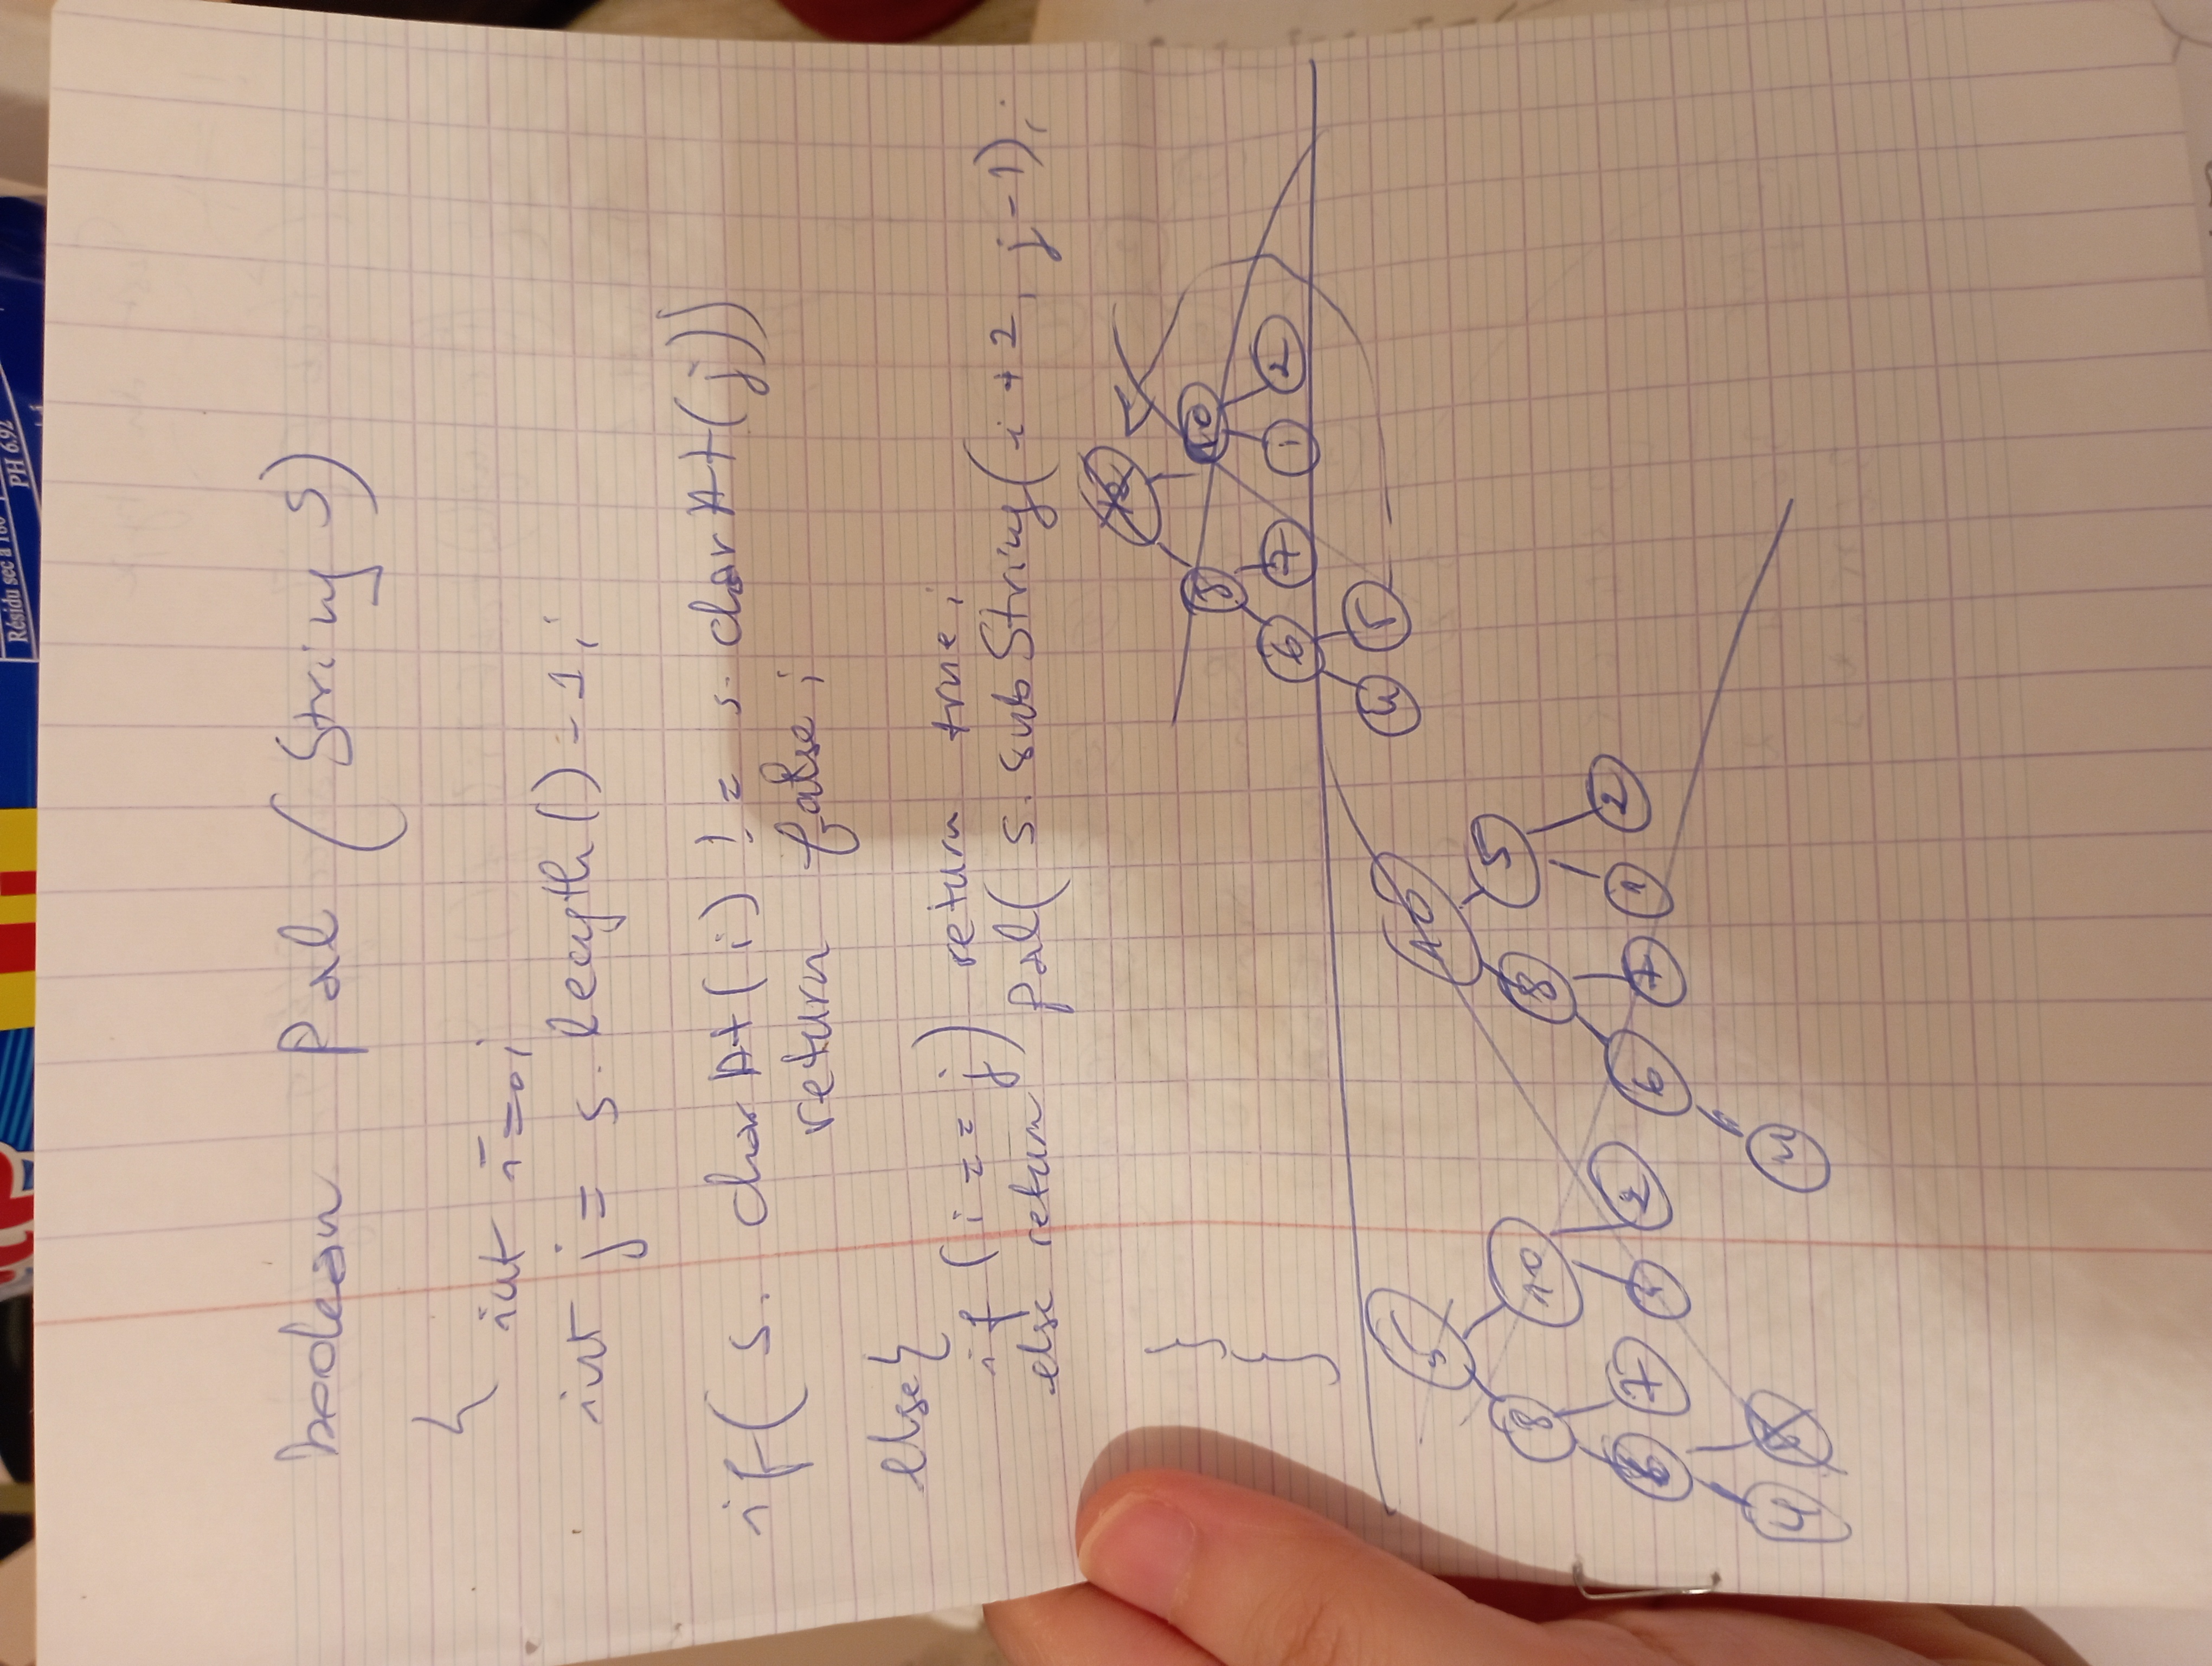 Résidu sec à 180
PH 6.92
boolean Pal (String S)
{
int i=0;
int j = s.length()-1;
if( s. charAt(i) != s. charAt(j))
return false;
else{
if (i == j) return true;
else return pal( s. subString(i+2, j-1);
}
}
12
8 10
6 7 1 2
4 5
5
8 10
6 7 1 2
4
10
8 5
6 7 1 2
4